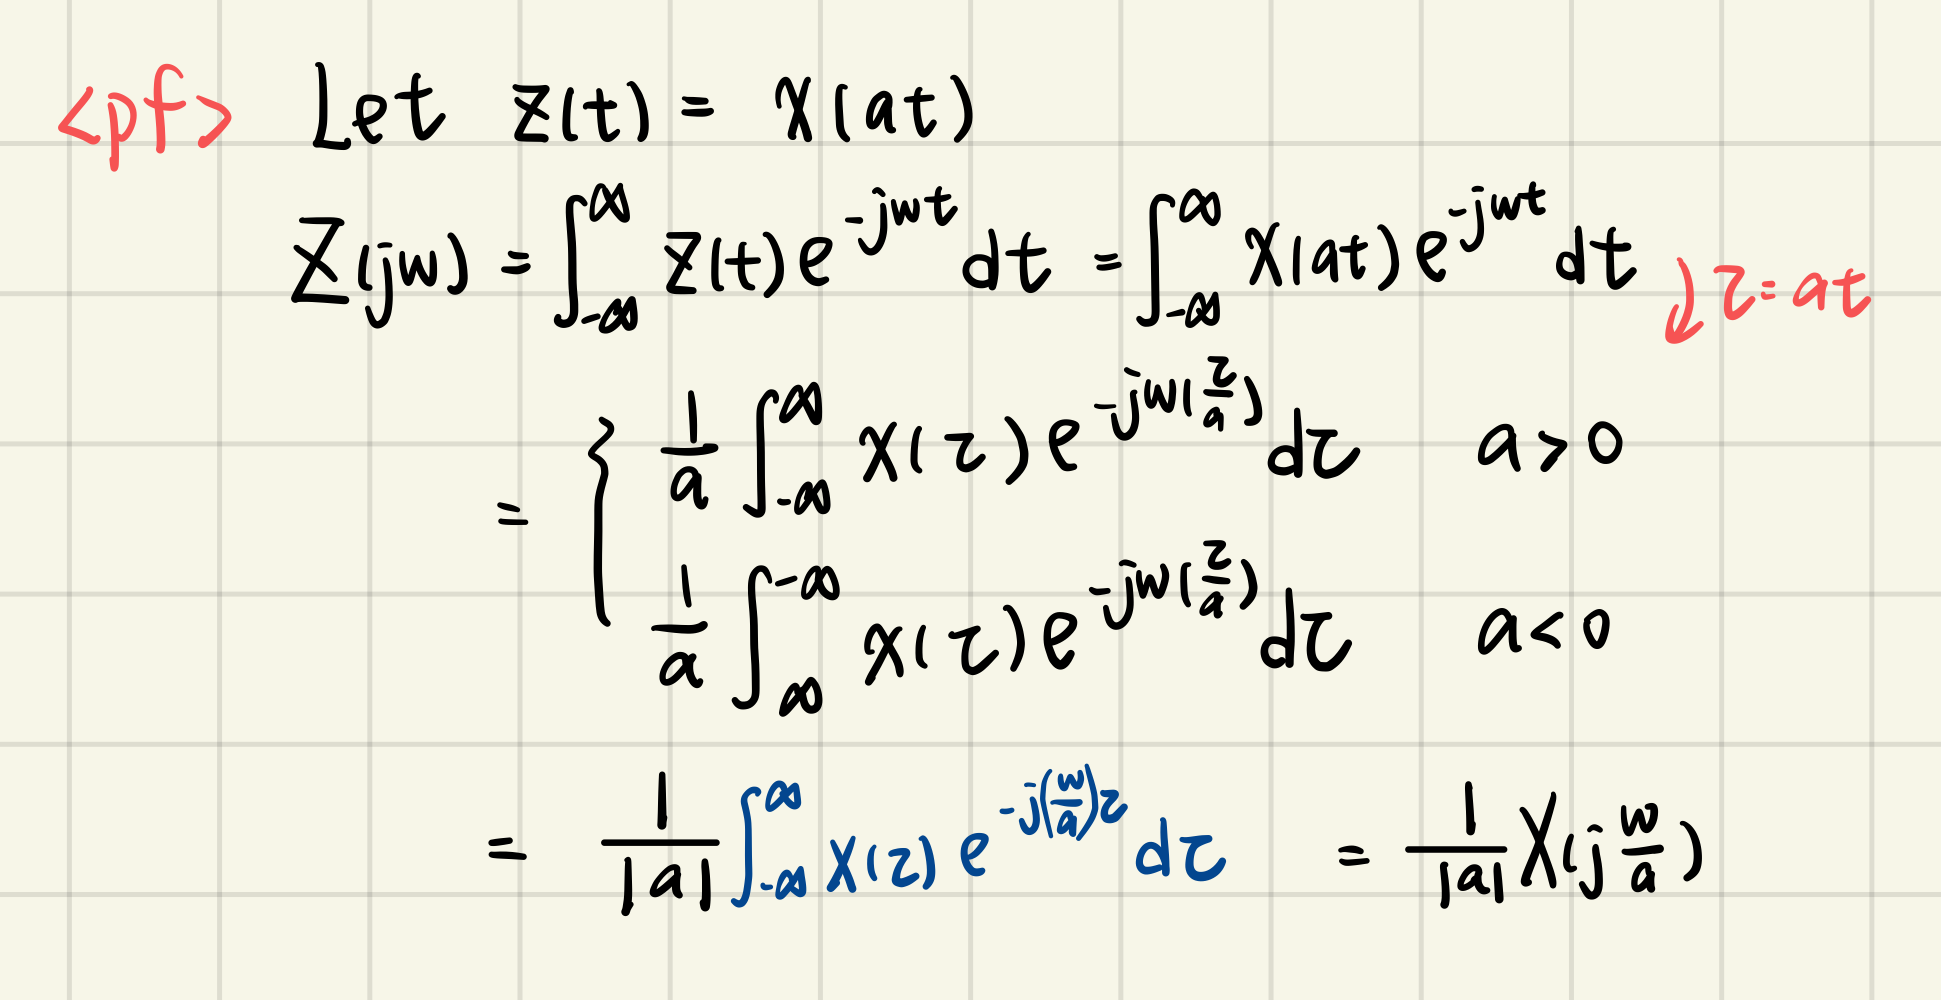 <pf> Let z(t) = x(at)
Z(jω) = ∫_{-∞}^{∞} z(t) e^{-jωt} dt = ∫_{-∞}^{∞} x(at) e^{-jωt} dt
τ = at
= { \frac{1}{a} ∫_{-∞}^{∞} x(τ) e^{-jω(\frac{τ}{a})} dτ a > 0
\frac{1}{a} ∫_{∞}^{-∞} x(τ) e^{-jω(\frac{τ}{a})} dτ a < 0
= \frac{1}{|a|} ∫_{-∞}^{∞} x(τ) e^{-j(\frac{ω}{a})τ} dτ = \frac{1}{|a|} X(j\frac{ω}{a})